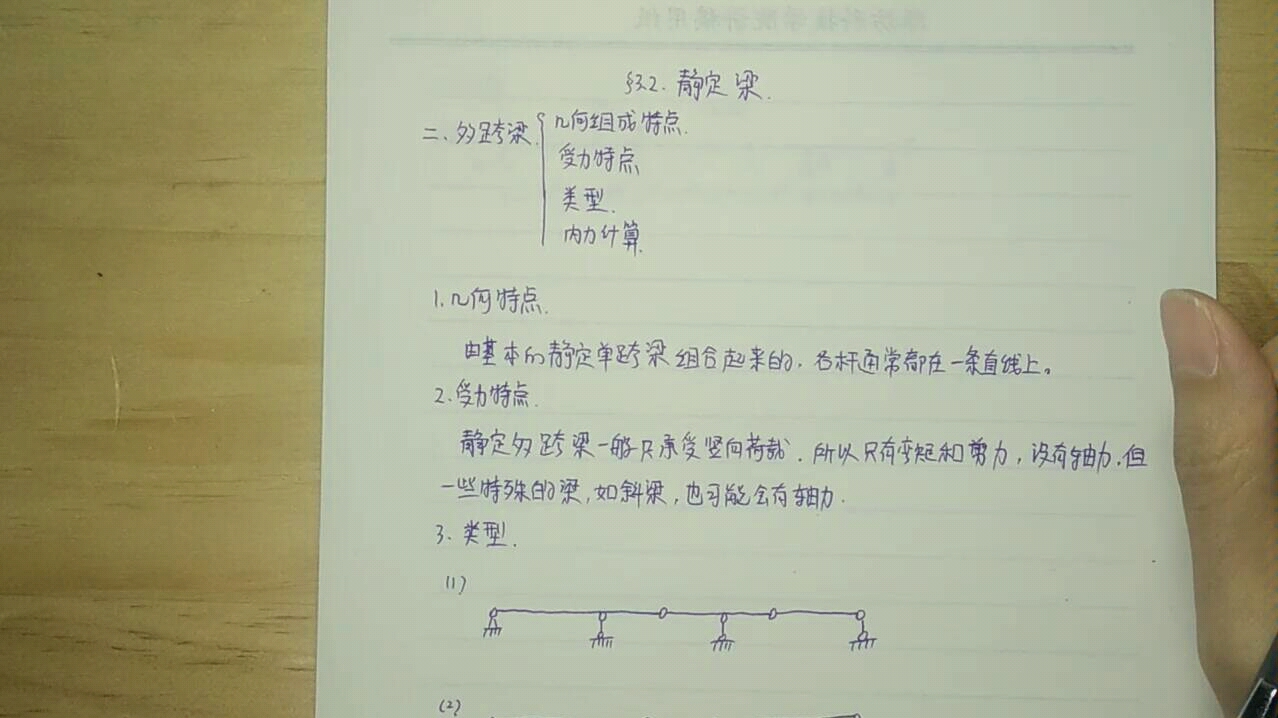 §3.2. 静定梁.
二、多跨梁.
几何组成特点.
受力特点
类型.
内力计算.
1. 几何特点.
由基本的静定单跨梁组合起来的. 各杆通常都在一条直线上。
2. 受力特点.
静定多跨梁一般只承受竖向荷载. 所以只有弯矩和剪力, 没有轴力. 但
一些特殊的梁, 如斜梁, 也可能会有轴力.
3. 类型.
(1)
(2)